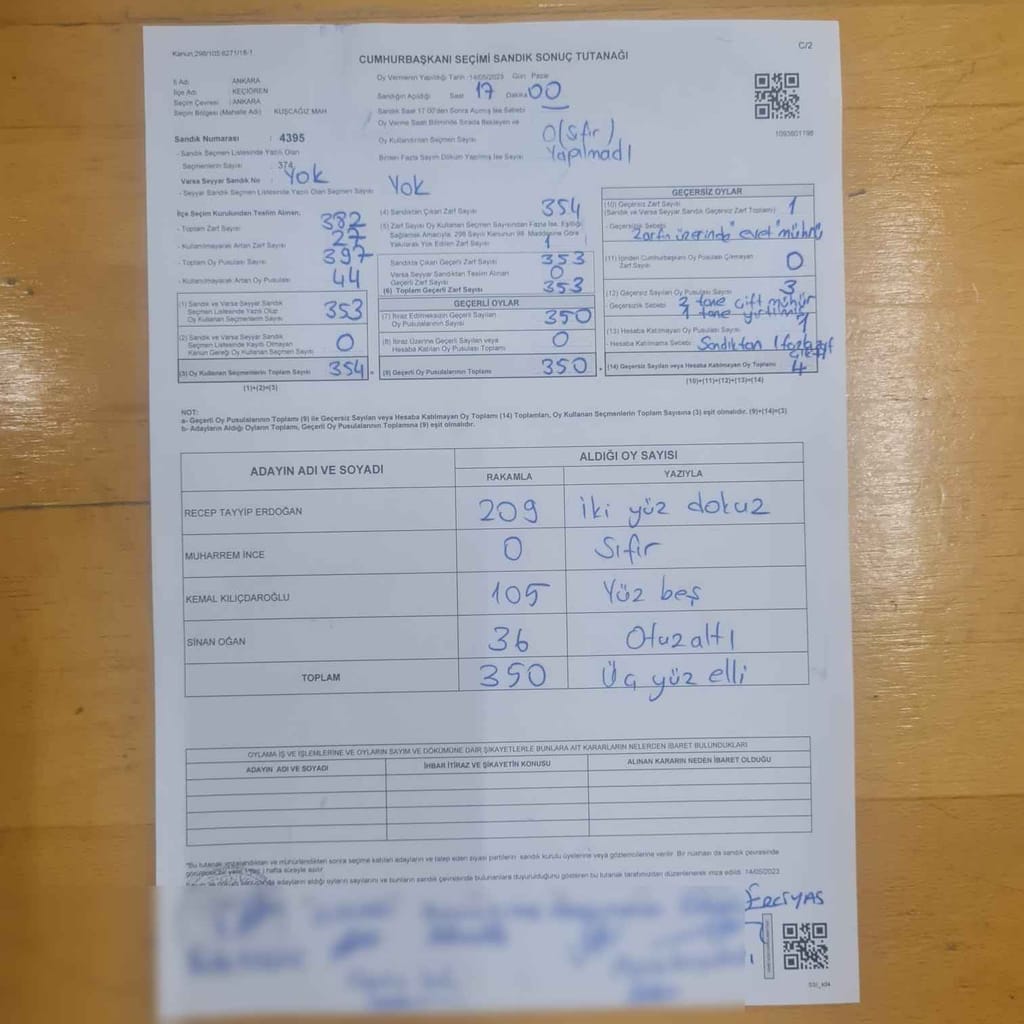 Kanun:298/105 6271/16-1
C/2
CUMHURBAŞKANI SEÇİMİ SANDIK SONUÇ TUTANAĞI
İl Adı : ANKARA
İlçe Adı : KEÇİÖREN
Seçim Çevresi : ANKARA
Seçim Bölgesi (Mahalle Adı) KUŞCAĞIZ MAH
Sandık Numarası : 4395
- Sandık Seçmen Listesinde Yazılı Olan
Seçmenlerin Sayısı : 374
Varsa Seyyar Sandık No : Yok
- Seyyar Sandık Seçmen Listesinde Yazılı Olan Seçmen Sayısı Yok
Oy Vermenin Yapıldığı Tarih :14/05/2023 Gün: Pazar
Sandığın Açıldığı Saat 17 Dakika 00
Sandık Saat 17:00'den Sonra Açılmış İse Sebebi
Oy Verme Saati Bitiminde Sırada Bekleyen ve
Oy Kullandırılan Seçmen Sayısı 0 (Sıfır)
Birden Fazla Sayım Döküm Yapılmış İse Sayısı Yapılmadı
1093801198
İlçe Seçim Kurulundan Teslim Alınan,
- Toplam Zarf Sayısı 382
- Kullanılmayarak Artan Zarf Sayısı 27
- Toplam Oy Pusulası Sayısı 397
- Kullanılmayarak Artan Oy Pusulası 44
(1) Sandık ve Varsa Seyyar Sandık
Seçmen Listesinde Yazılı Olup
Oy Kullanan Seçmenlerin Sayısı 353
(2) Sandık ve Varsa Seyyar Sandık
Seçmen Listesinde Kayıtlı Olmayan
Kanun Gereği Oy Kullanan Seçmen Sayısı 0
(3) Oy Kullanan Seçmenlerin Toplam Sayısı 354 =
(1)+(2)=(3)
(4) Sandıktan Çıkan Zarf Sayısı 354
(5) Zarf Sayısı Oy Kullanan Seçmen Sayısından Fazla İse, Eşitliği
Sağlamak Amacıyla, 298 Sayılı Kanunun 98. Maddesine Göre
Yakılarak Yok Edilen Zarf Sayısı 1
Sandıkta Çıkan Geçerli Zarf Sayısı 353
Varsa Seyyar Sandıktan Teslim Alınan
Geçerli Zarf Sayısı 0
(6) Toplam Geçerli Zarf Sayısı 353
GEÇERLİ OYLAR
(7) İtiraz Edilmeksizin Geçerli Sayılan
Oy Pusulalarının Sayısı 350
(8) İtiraz Üzerine Geçerli Sayılan veya
Hesaba Katılan Oy Pusulası Toplamı 0
(9) Geçerli Oy Pusulalarının Toplamı 350 +
GEÇERSİZ OYLAR
(10) Geçersiz Zarf Sayısı
(Sandık ve Varsa Seyyar Sandık Geçersiz Zarf Toplamı) 1
- Geçersizlik Sebebi Zarfın üzerinde "evet" mührü
(11) İçinden Cumhurbaşkanı Oy Pusulası Çıkmayan
Zarf Sayısı 0
(12) Geçersiz Sayılan Oy Pusulası Sayısı 3
Geçersizlik Sebebi: 2 tane çift mühür
1 tane yırtılmış
(13) Hesaba Katılmayan Oy Pusulası Sayısı 1
- Hesaba Katılmama Sebebi Sandıktan 1 fazla zarf
çıktı
(14) Geçersiz Sayılan veya Hesaba Katılmayan Oy Toplamı 4
(10)+(11)+(12)+(13)=(14)
NOT:
a- Geçerli Oy Pusulalarının Toplamı (9) ile Geçersiz Sayılan veya Hesaba Katılmayan Oy Toplamı (14) Toplamları, Oy Kullanan Seçmenlerin Toplam Sayısına (3) eşit olmalıdır. (9)+(14)=(3)
b- Adayların Aldığı Oyların Toplamı, Geçerli Oy Pusulalarının Toplamına (9) eşit olmalıdır.
ADAYIN ADI VE SOYADI
ALDIĞI OY SAYISI
RAKAMLA YAZIYLA
RECEP TAYYİP ERDOĞAN 209 iki yüz dokuz
MUHARREM İNCE 0 Sıfır
KEMAL KILIÇDAROĞLU 105 Yüz beş
SİNAN OĞAN 36 Otuz altı
TOPLAM 350 Üç yüz elli
OYLAMA İŞ VE İŞLEMLERİNE VE OYLARIN SAYIM VE DÖKÜMÜNE DAİR ŞİKAYETLERLE BUNLARA AİT KARARLARIN NELERDEN İBARET BULUNDUKLARI
ADAYIN ADI VE SOYADI
İHBAR İTİRAZ VE ŞİKAYETİN KONUSU
ALINAN KARARIN NEDEN İBARET OLDUĞU
*Bu tutanak imzalandıktan ve mühürlendikten sonra seçime katılan adayların ve talep eden siyasi partilerin sandık kurulu üyelerine veya gözlemcilerine verilir. Bir nüshası da sandık çevresinde
hafta süreyle asılır.
adayların aldığı oyların sayılarını ve bunların sandık çevresinde bulunanlara duyurulduğunu gösteren bu tutanak tarafımızdan düzenlenerek imza edildi. 14/05/2023